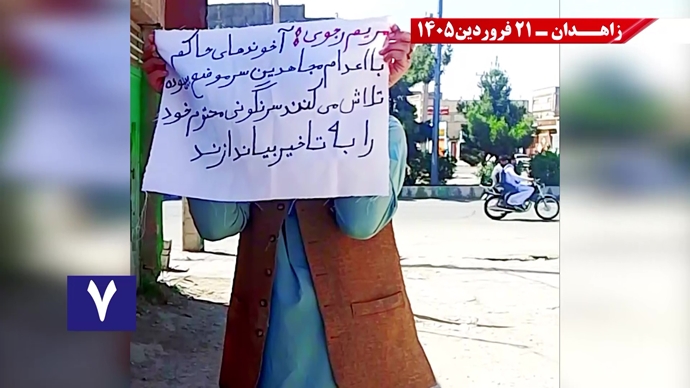 زاهدان ـ ۲۱ فروردین ۱۴۰۵
مریم رجوی: آخوندهای حاکم
با اعدام مجاهدین سرموضع بیهوده
تلاش می‌کنند سرنگونی محتوم خود
را به تاخیر بیاندازند
۷